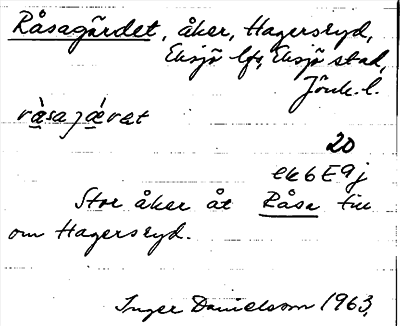 Råsagärdet, åker, Hagersryd,
Eksjö lfs, Eksjö stad,
Jönk. l.
ràsajǽret
20
ek6E9j
Stor åker åt Råsa till
om Hagersryd.
Inger Danielsson 1963.